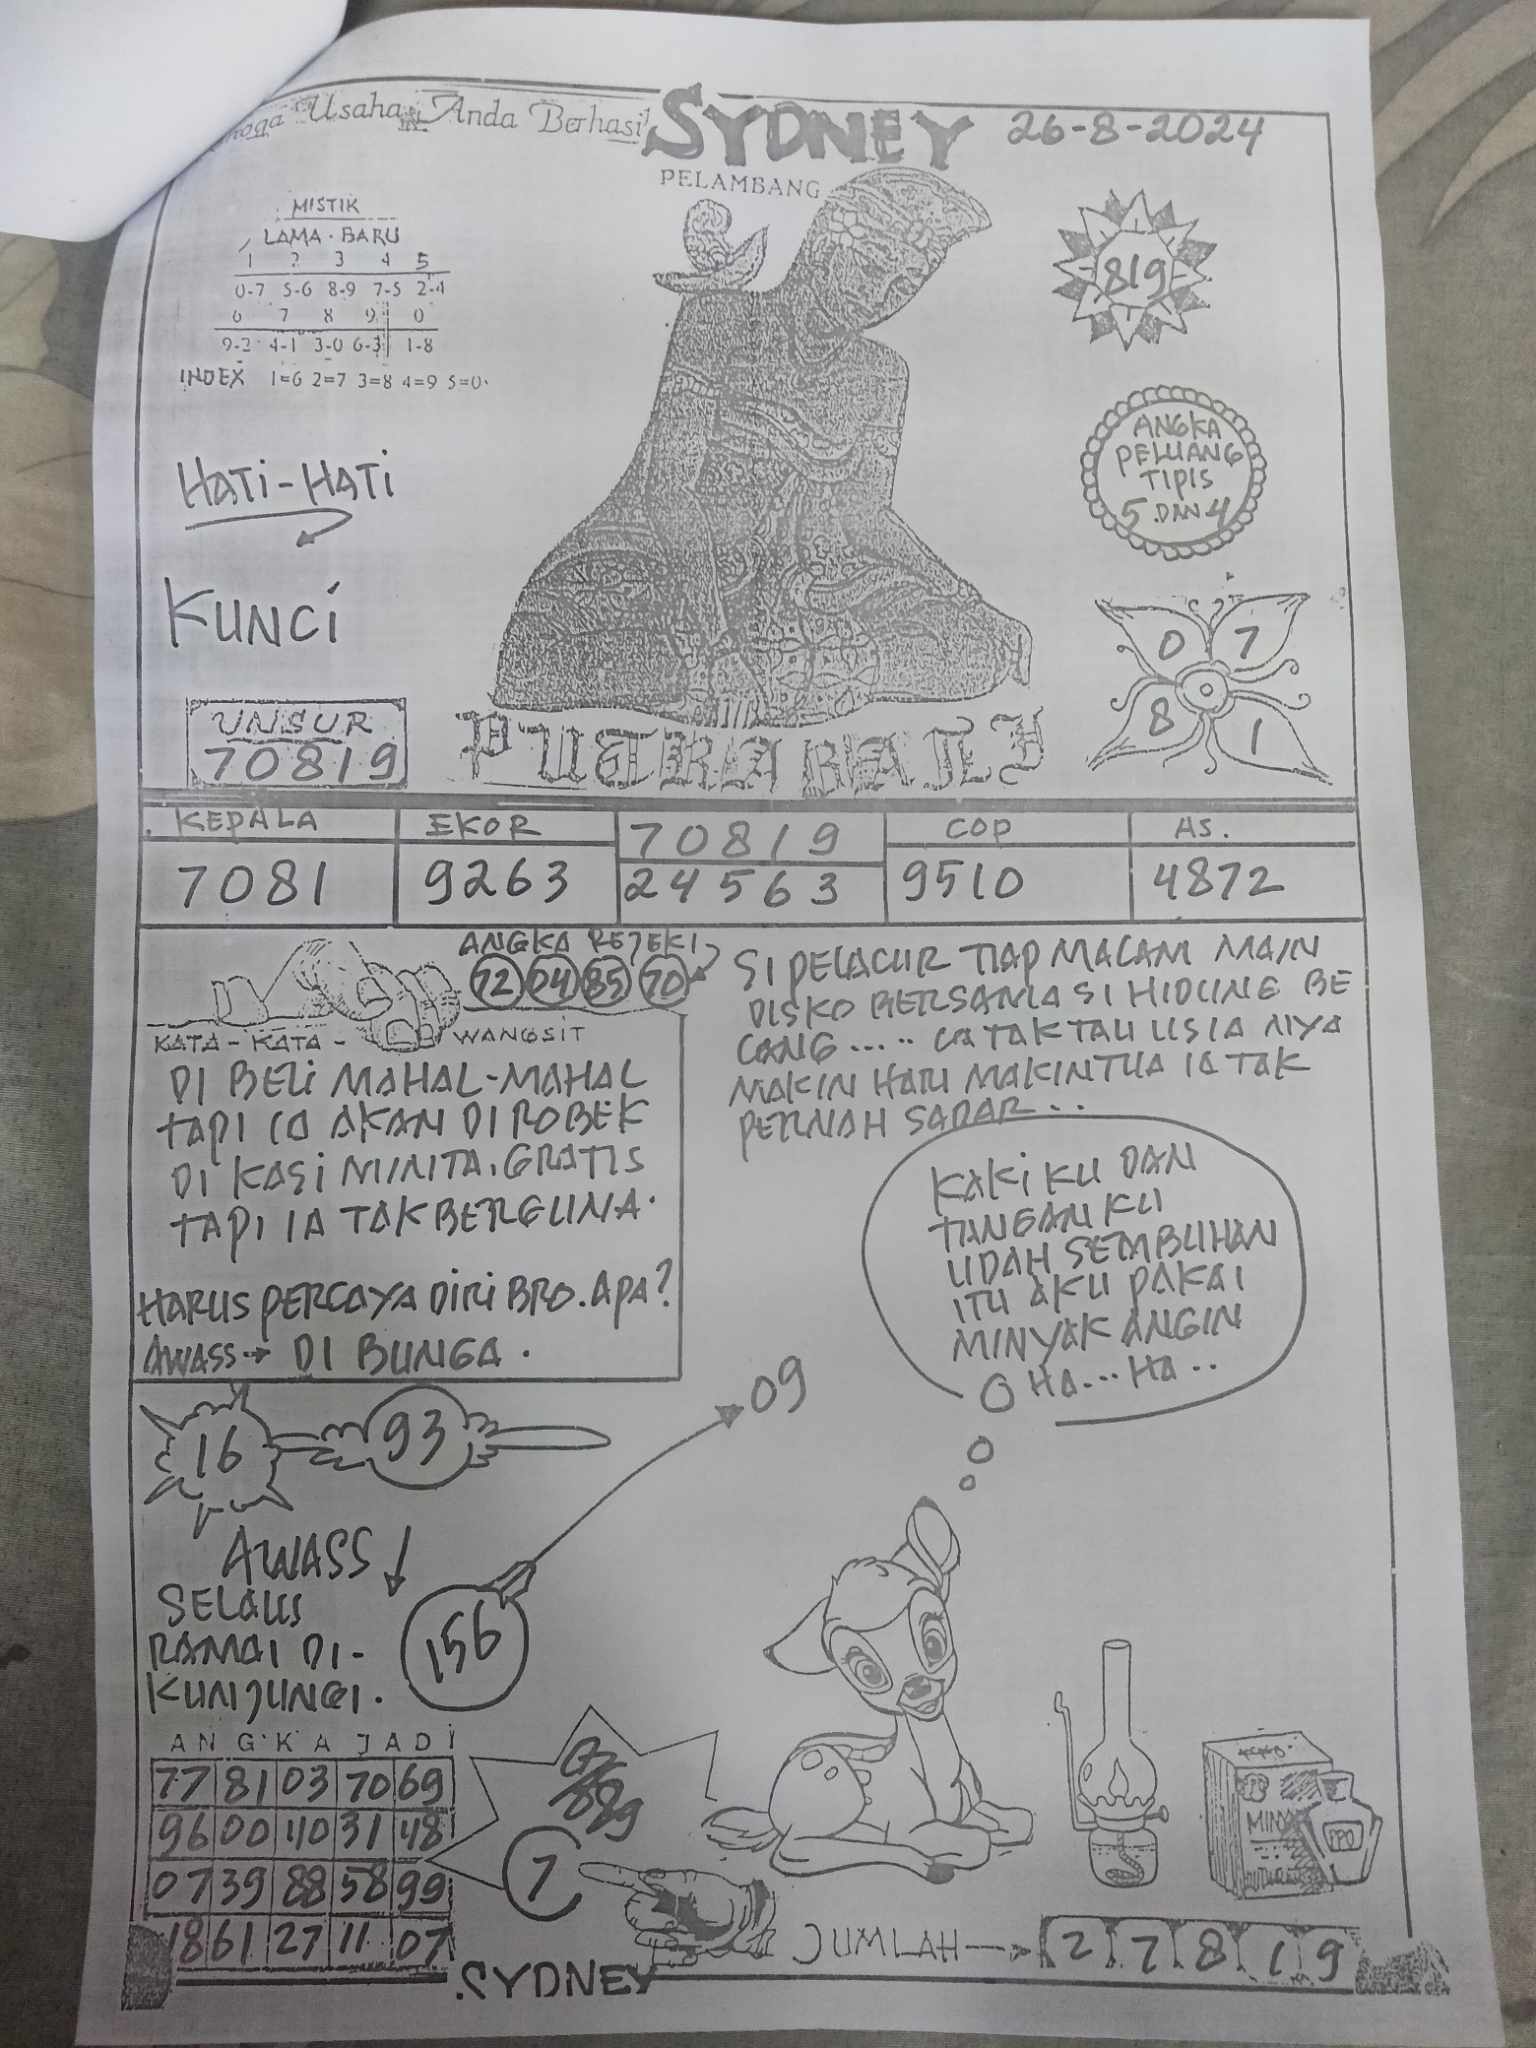 Usaha Anda Berhasil
SYDNEY 26-8-2024
PELAMBANG
MISTIK
LAMA · BARU
1 2 3 4 5
0-7 5-6 8-9 7-5 2-4
6 7 8 9 0
9-2 4-1 3-0 6-3 1-8
INDEX 1=6 2=7 3=8 4=9 5=0
819
HATI-HATI
ANGKA
PELUANG
TIPIS
5 DAN 4
KUNCI
0 7
8 1
UNSUR
70819
PUTRA BALI
KEPALA EKOR 70819 COP AS.
7081 9263 24563 9510 4872
ANGKA REJEKI
72 04 85 70
KATA-KATA- WANGSIT
DI BELI MAHAL-MAHAL
TAPI IA AKAN DI ROBEK
DI KASI MINTA. GRATIS
TAPI IA TAK BERGUNA.
HARUS PERCAYA DIRI BRO. APA?
AWASS → DI BUNGA.
SI PELACUR TIAP MALAM MAIN
DISKO BERSAMA SI HIDUNG BE
LANG..... IA TAK TAU USIA NYA
MAKIN HARI MAKIN TUA IA TAK
PERNAH SADAR...
KAKI KU DAN
TANGAN KU
UDAH SEMBUHAN
ITU AKU PAKAI
MINYAK ANGIN
HA...HA..
16 93
09
AWASS
SELALU
RAMAI DI-
KUNJUNGI.
156
ANGKA JADI
77 81 03 70 69
96 00 40 31 48
07 39 88 58 99
18 61 27 11 07
7
MINY
PPO
JUMLAH → 2 7 8 1 9
.SYDNEY